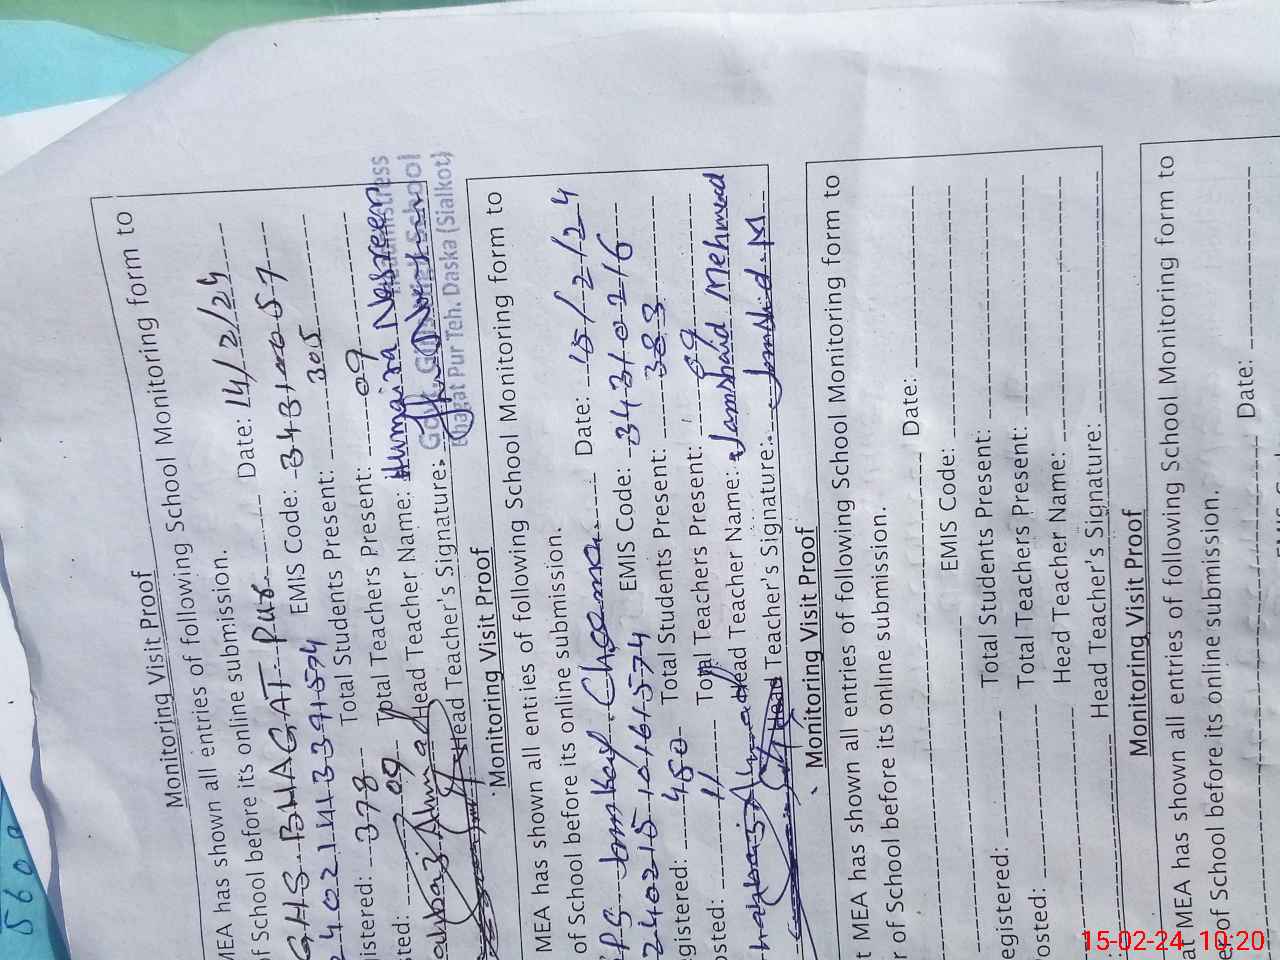 Monitoring Visit Proof
MEA has shown all entries of following School Monitoring form to
of School before its online submission.
GHS. BHAGAT PUR Date: 14/2/24
EMIS Code: 34310057
gistered: 378 Total Students Present: 305
sted: 09 Total Teachers Present: 09
Ahmad Head Teacher Name: Humaira Nasreen
Head Teacher's Signature:
Headmistress
Govt. Girls High School
Bhagat Pur Teh. Daska (Sialkot)
Monitoring Visit Proof
MEA has shown all entries of following School Monitoring form to
of School before its online submission.
Cheema Date: 15/2/24
EMIS Code: 34310216
gistered: 450 Total Students Present: 383
osted: 11 Total Teachers Present: 09
Ahmad Head Teacher Name: Jamshaid Mehmood
Head Teacher's Signature: Jamshid.M
Monitoring Visit Proof
t MEA has shown all entries of following School Monitoring form to
r of School before its online submission.
Date:
EMIS Code:
egistered: Total Students Present:
osted: Total Teachers Present:
Head Teacher Name:
Head Teacher's Signature:
Monitoring Visit Proof
at MEA has shown all entries of following School Monitoring form to
er of School before its online submission.
Date:
560
15-02-24 10:20